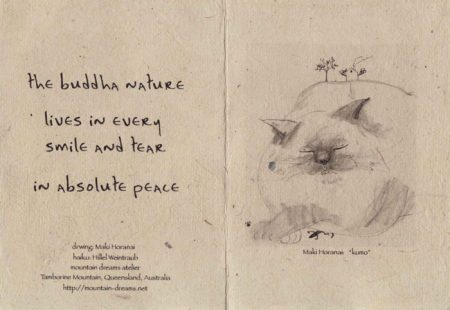 the buddha nature
lives in every
smile and tear
in absolute peace
drwing: Maki Horanai
haiku: Hillel Weintraub
mountain dreams atelier
Tamborine Mountain, Queensland, Australia
http://mountain-dreams.net
Maki Horanai "kumo"